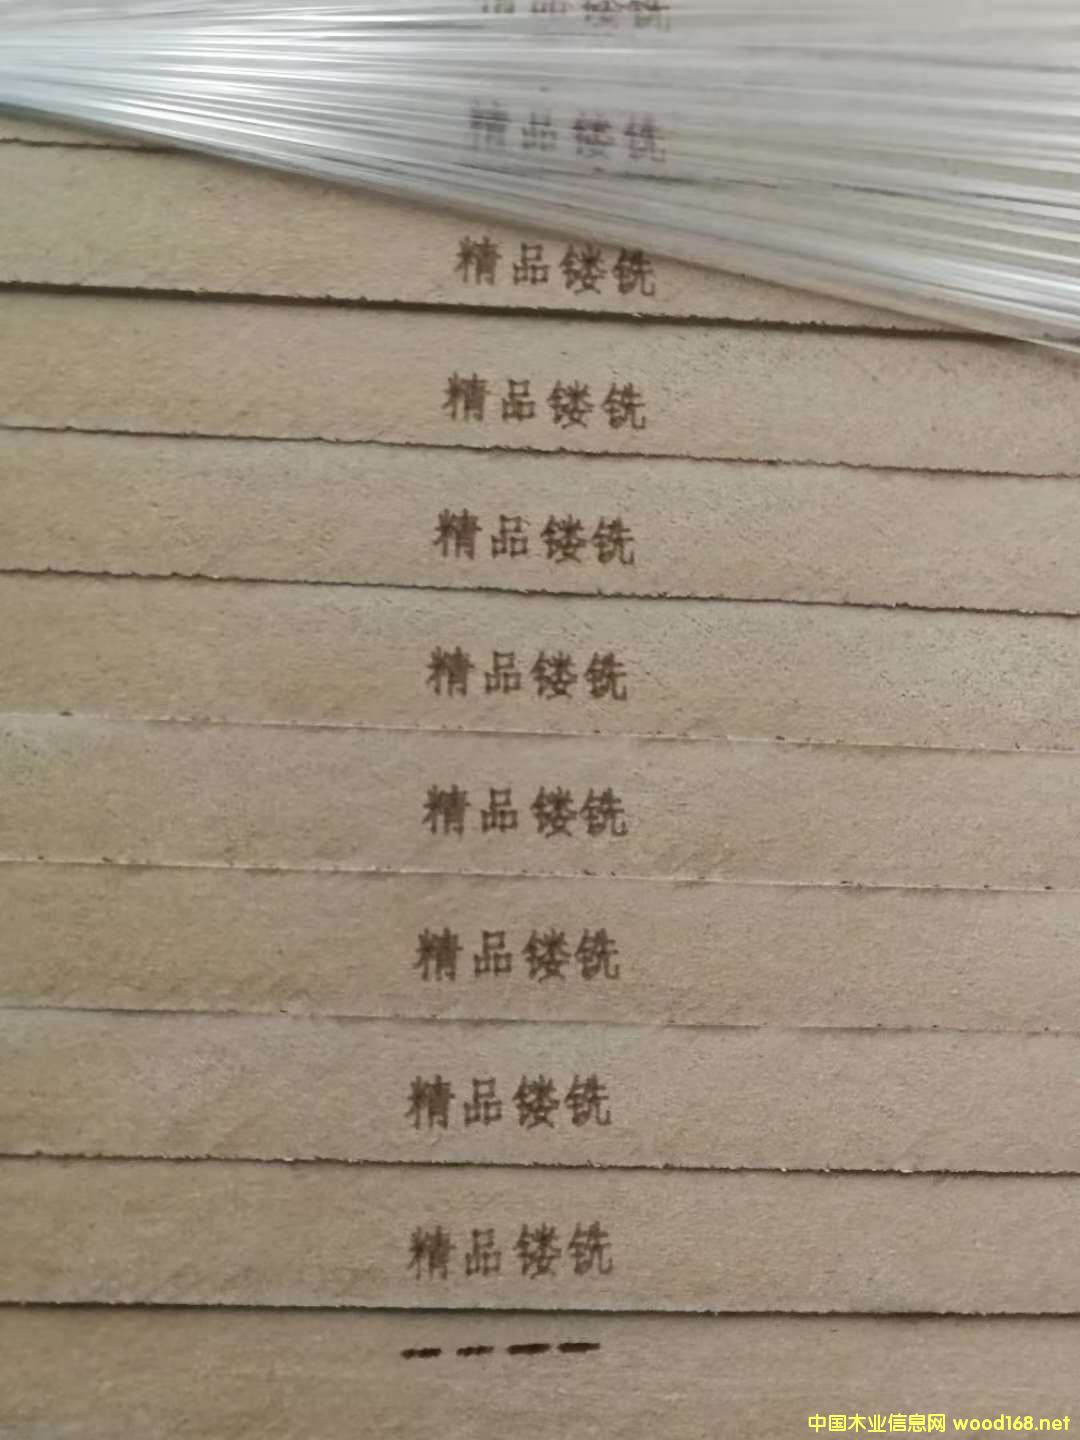 精品镂铣
精品镂铣
精品镂铣
精品镂铣
精品镂铣
精品镂铣
精品镂铣
精品镂铣
精品镂铣
精品镂铣
中国木业信息网 wood168.net